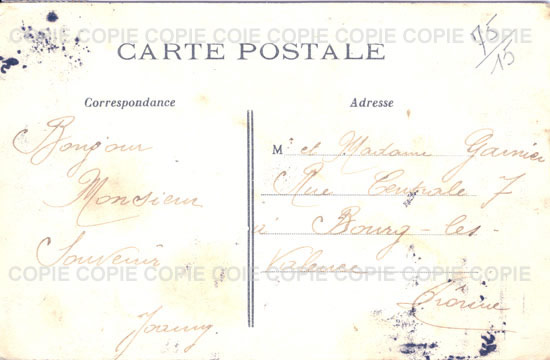 COPIE COPIE COPIE COPIE COPIE COPIE COPIE
75/15
CARTE POSTALE
Correspondance
Adresse
Bonjour
Monsieur
Souvenir
M et Madame Garnier
Rue Centrale 7
à Bourg-les-
Valence
Drôme
COPIE COPIE COPIE COPIE COPIE COPIE COPIE
COPIE COPIE COPIE COPIE COPIE COPIE COPIE